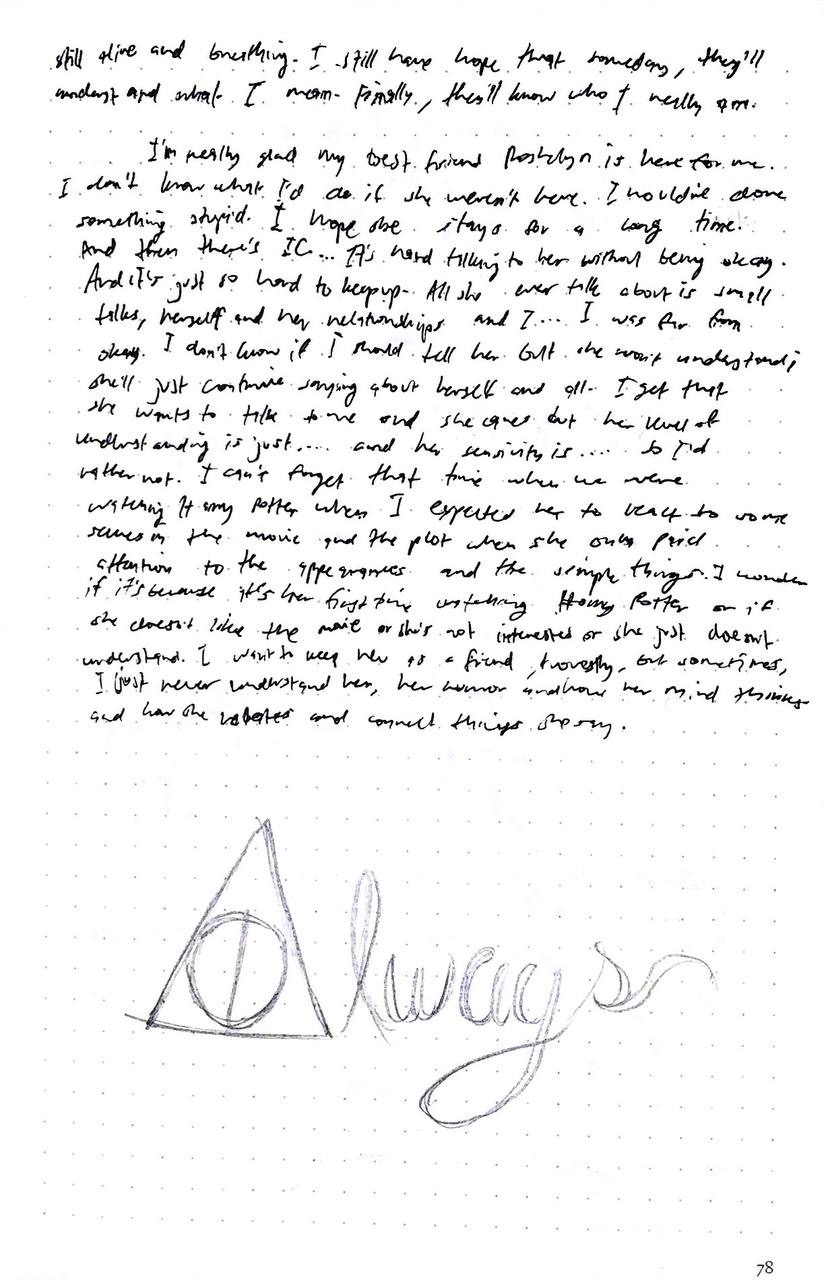 still alive and breathing. I still have hope that someday, they'll
understand what I mean. Finally, they'll know who I really am.
I'm really glad my best friend is here for me.
I don't know what I'd do if she weren't here. I would've done
something stupid. I hope she stays for a long time.
And then there's IC... It's hard talking to her without being okay.
And it's just so hard to keep up. All she ever talk about is small
talks, herself and her relationships and I... I was far from
okay. I don't know if I should tell her but she won't understand;
she'll just continue saying about herself and all. I get that
she wants to talk to me and she cares but her level of
understanding is just.... and her sensivity is .... so I'd
rather not. I can't forget that time when we were
watching Harry Potter when I expected her to react to some
scenes in the movie and the plot when she only paid
attention to the appearances and the simple things. I wonder
if it's because it's her first time watching Harry Potter or if
she doesn't like the movie or she's not interested or she just doesn't
understand. I want to keep her as a friend, honestly, but sometimes,
I just never understand her, her humor and how her mind thinks
and how she relates and connect things she say.
Always
78